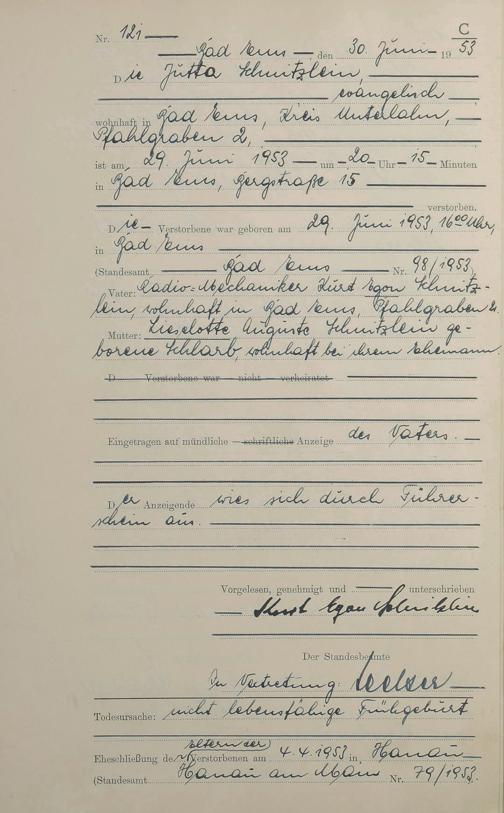 C
Nr. 121
53
Bad Ems, den 30. Juni 19
Die Jutta Schmitzlein,
evangelisch
wohnhaft in Bad Ems, Kreis Unterlahn,
Pfahlgraben 2,
ist am 29. Juni 1953 um 20 Uhr 15 Minuten
in Bad Ems, Bergstraße 15
verstorben.
Die Verstorbene war geboren am 29. Juni 1953, 16⁰⁰ Uhr,
in Bad Ems
(Standesamt Bad Ems Nr. 98/1953)
Vater: Radio-Mechaniker Kurt Egon Schmitz-
lein, wohnhaft in Bad Ems, Pfahlgraben 2.
Mutter: Lieselotte Auguste Schmitzlein ge-
borene Schlarb, wohnhaft bei ihrem Ehemann.
D Verstorbene war nicht verheiratet
Eingetragen auf mündliche schriftliche Anzeige des Vaters.
Der Anzeigende wies sich durch Führer-
schein aus.
Vorgelesen, genehmigt und unterschrieben
Kurt Egon Schmitzlein
Der Standesbeamte
In Vertretung:
Todesursache: nicht lebensfähige Frühgeburt
Eltern der
Eheschließung der Verstorbenen am 4.4.1953 in Hanau
(Standesamt Hanau am Main Nr. 79/1953)